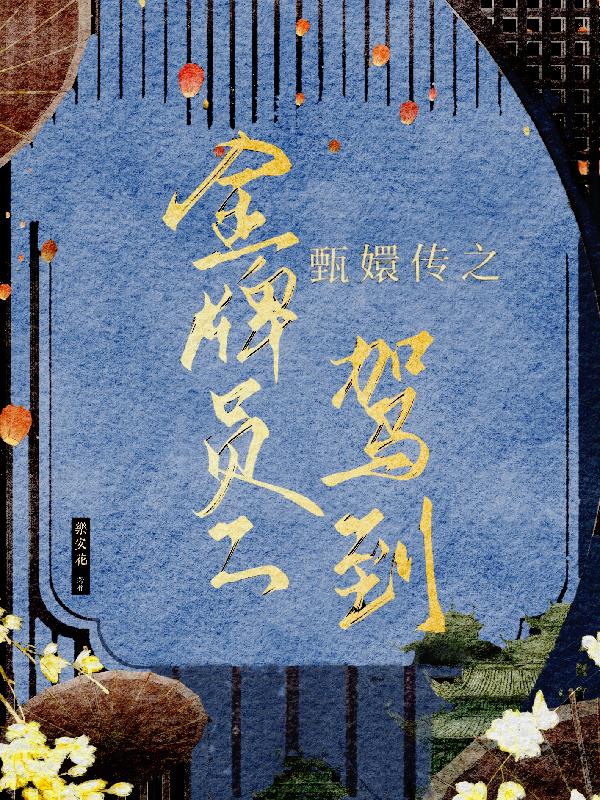 甄嬛传之
金牌员工
驾到
樂安花
著作